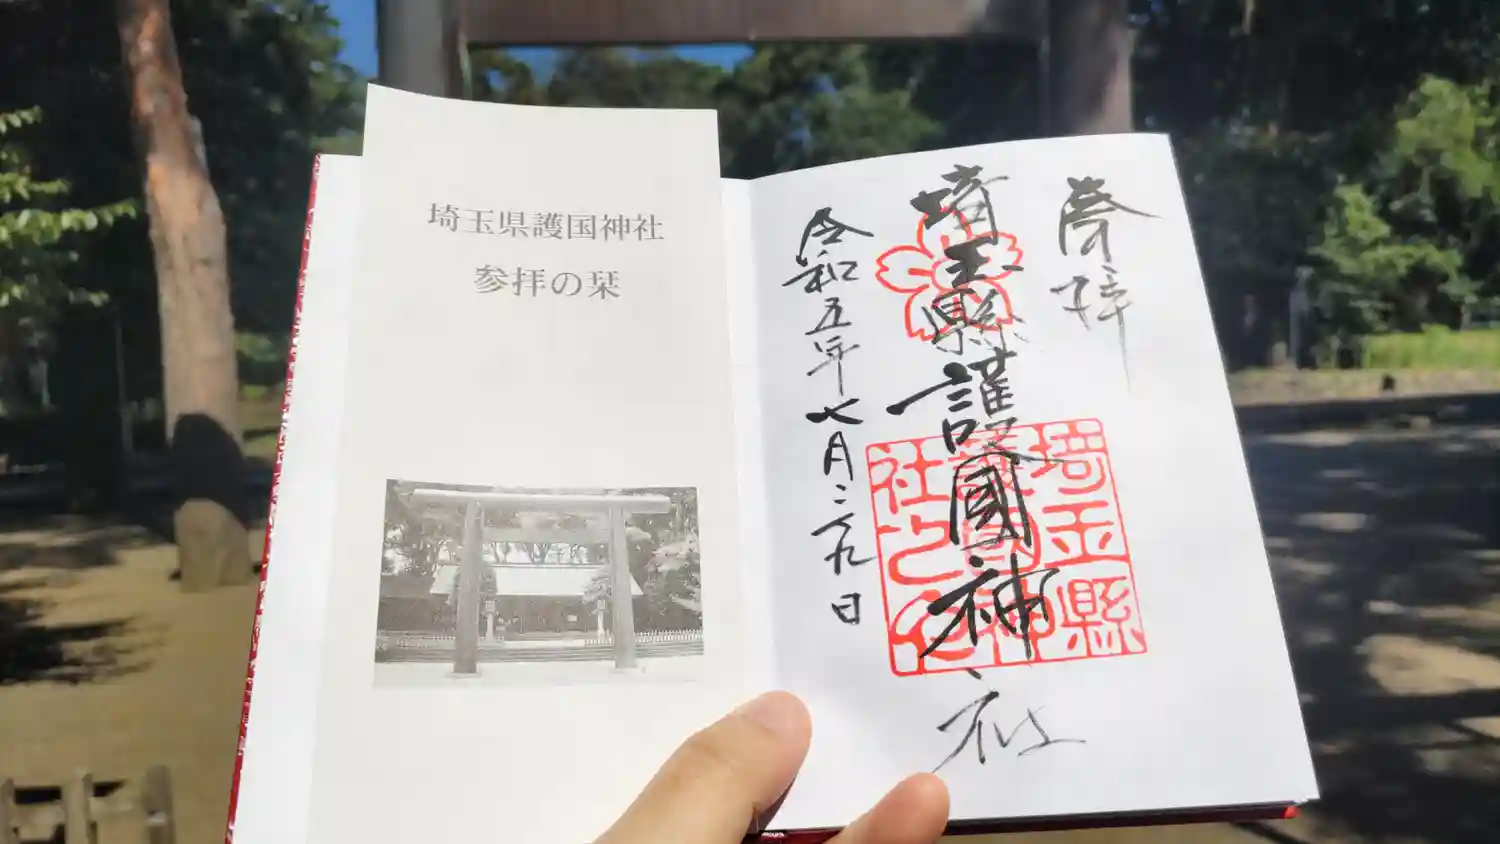 埼玉県護国神社
参拝の栞
奉拝
埼玉縣護國神社
令和五年七月二九日
埼玉縣
護國神
社之印